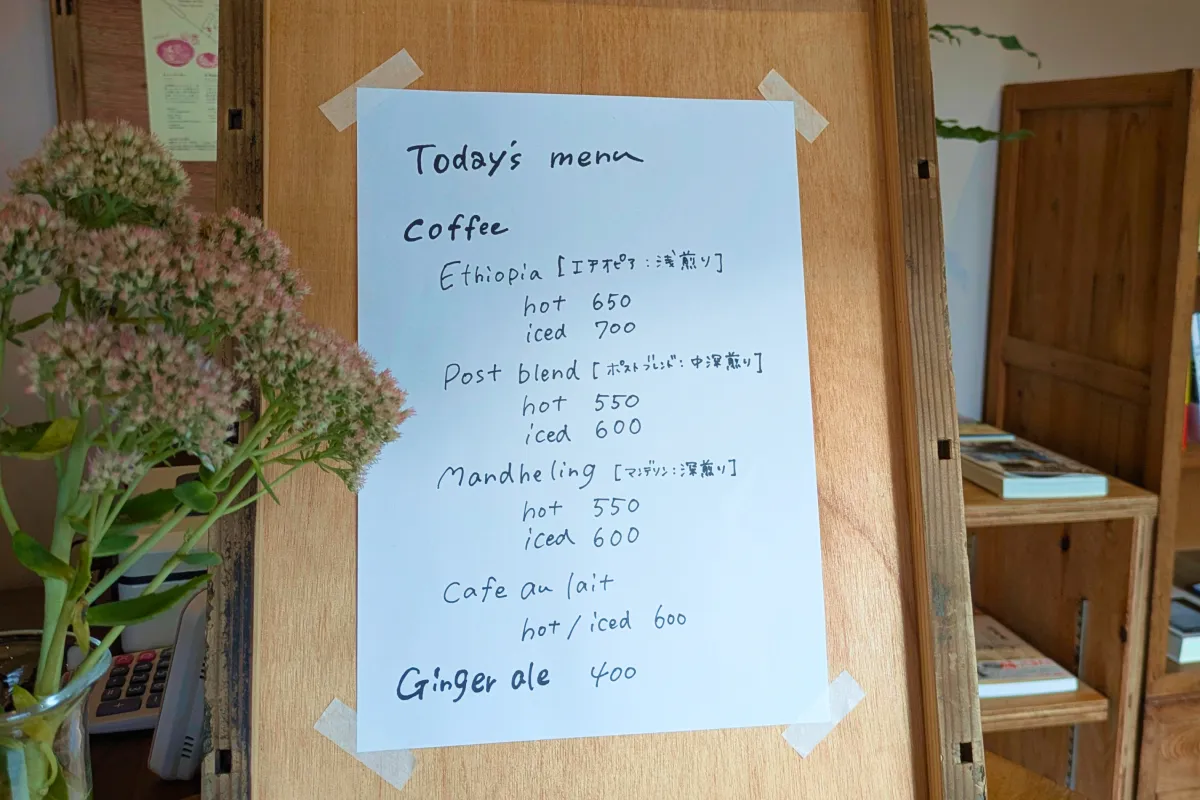 Today's menu
Coffee
Ethiopia [エチオピア：浅煎り]
hot 650
iced 700
Post blend [ポストブレンド：中深煎り]
hot 550
iced 600
Mandheling [マンデリン：深煎り]
hot 550
iced 600
Cafe au lait
hot/iced 600
Ginger ale 400